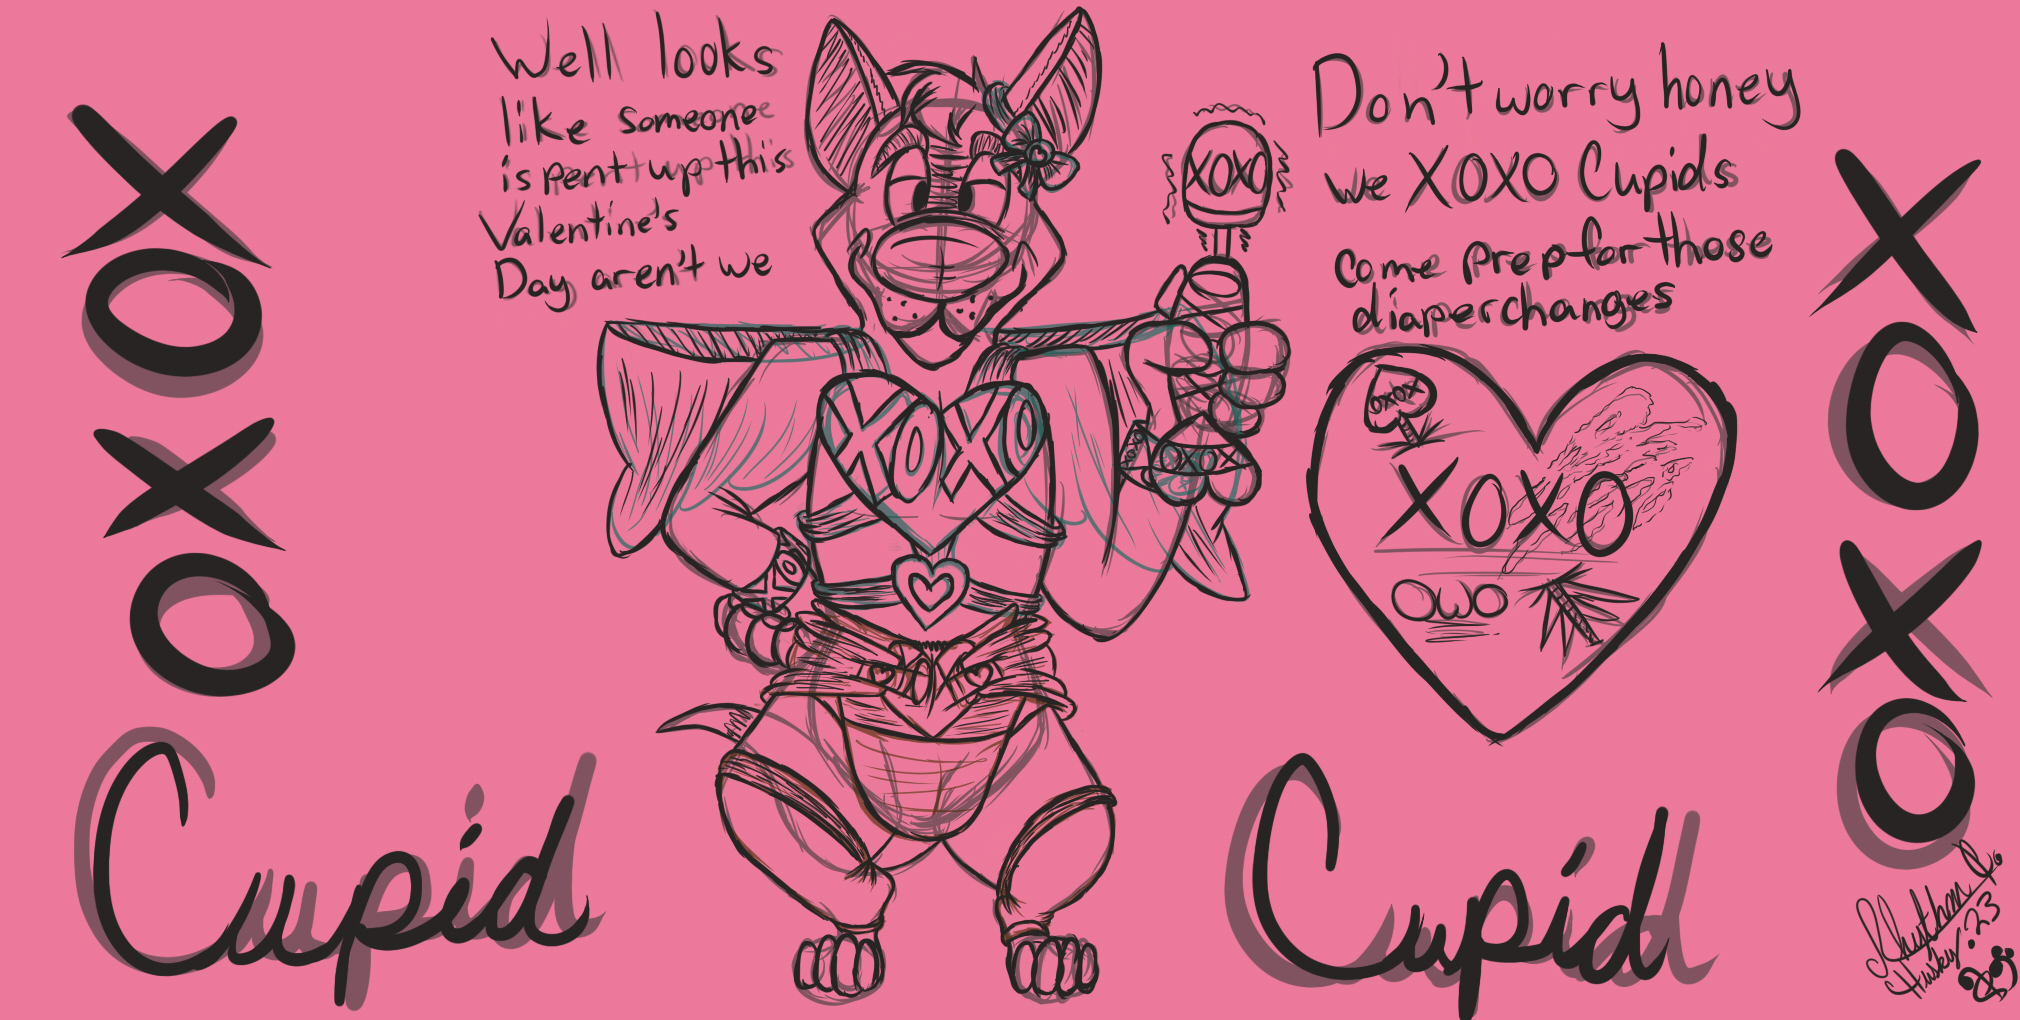 XOXO
Cupid
Well looks
like someone
is pent up this
Valentine's
Day aren't we
XOXO
XOXO
OXO
Don't worry honey
we XOXO Cupids
come prep for those
diaper changes
OXOX
XOXO
OWO
Cupid
XOXO
Rhythm
Husky.23